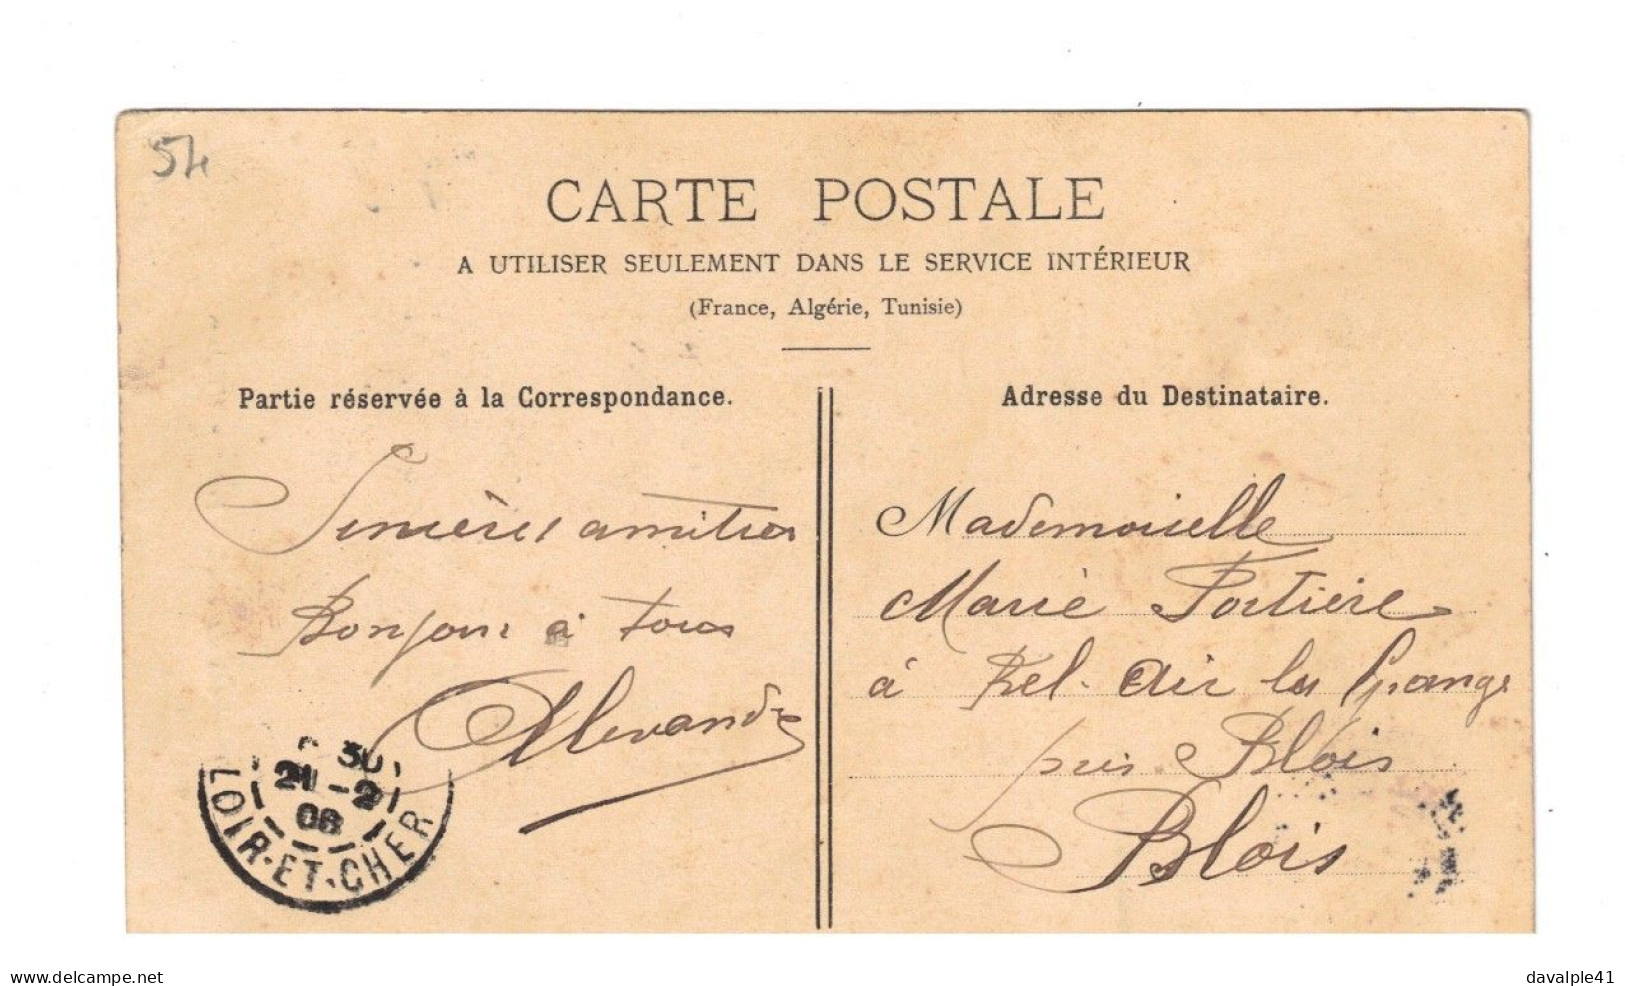 54
CARTE POSTALE
A UTILISER SEULEMENT DANS LE SERVICE INTÉRIEUR
(France, Algérie, Tunisie)
Partie réservée à la Correspondance.
Sincères amitiés
Bonjour à tous
Alexandre
30
21 -2
06
LOIR-ET-CHER
Adresse du Destinataire.
Mademoiselle
Marie Portière
à Bel-Air les Granges
près Blois
Blois
www.delcampe.net
davalple41